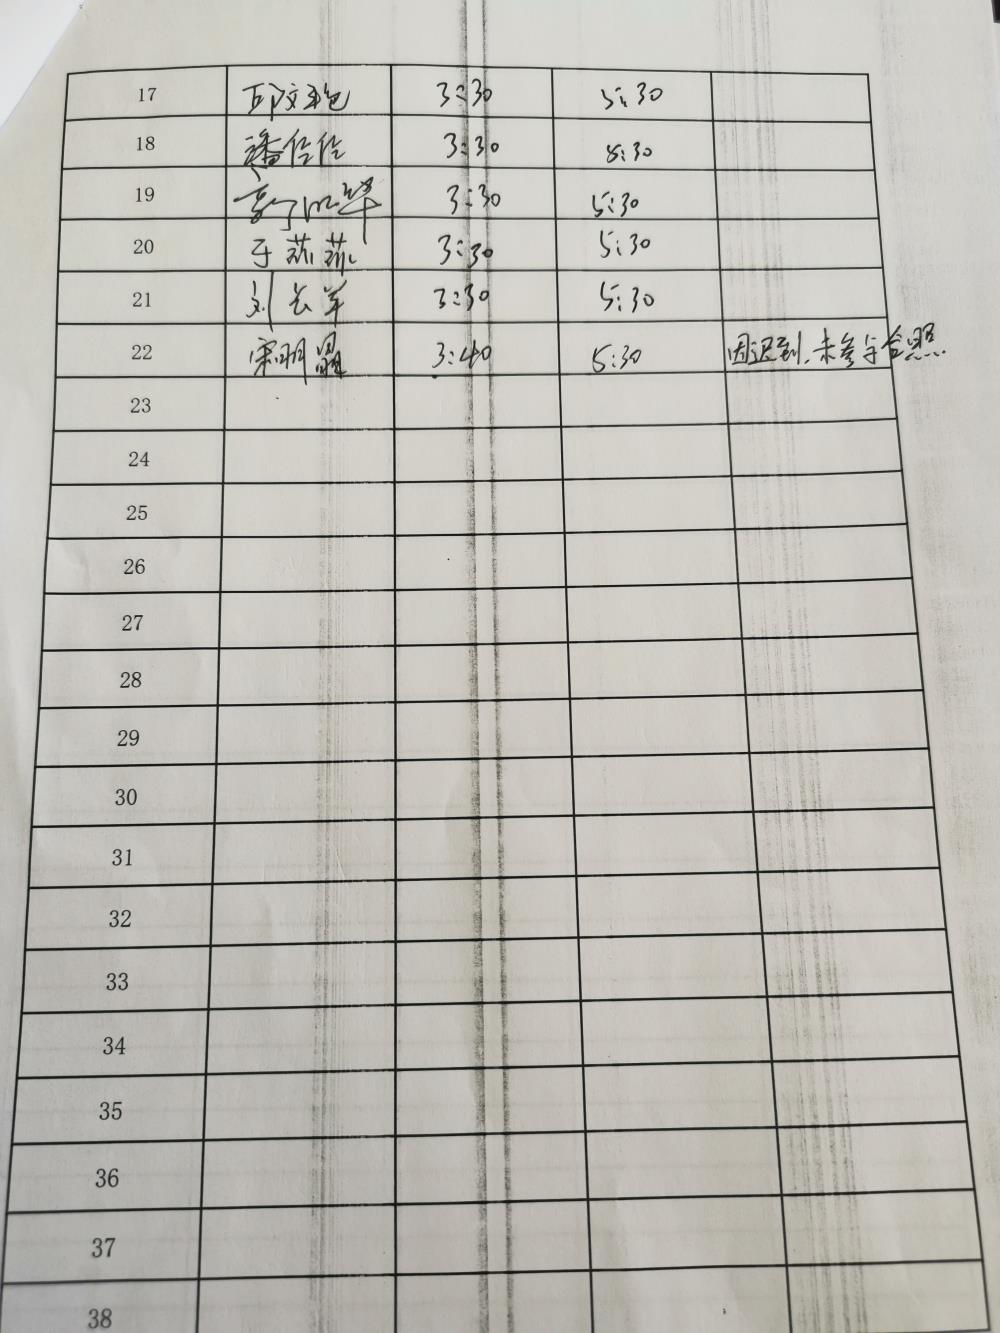 17 3:30 5:30
18 潘伶伶 3:30 5:30
19 3:30 5:30
20 于燕燕 3:30 5:30
21 刘长军 3:30 5:30
22 宋明晶 3:40 5:30 因迟到,未参与合照
23
24
25
26
27
28
29
30
31
32
33
34
35
36
37
38